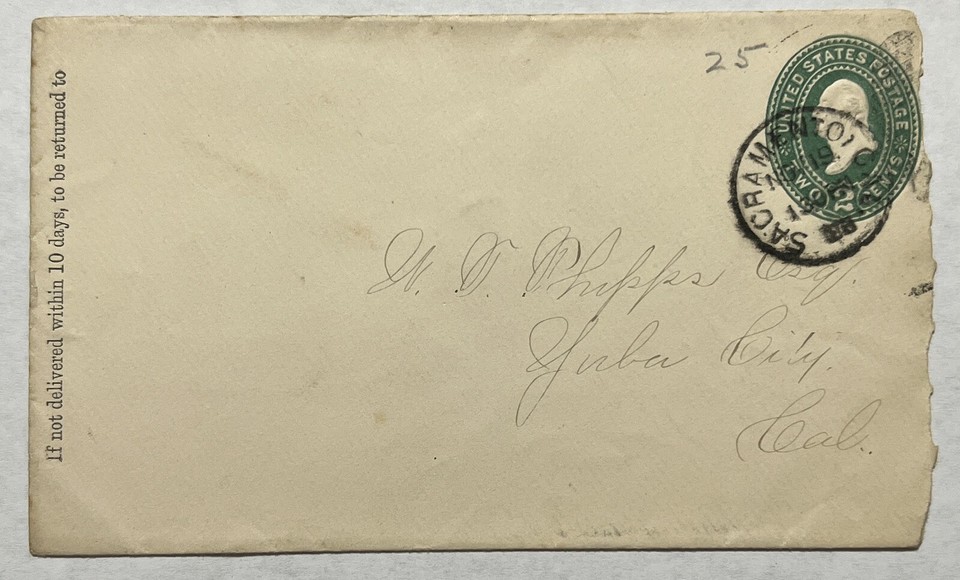 If not delivered within 10 days, to be returned to
25
UNITED STATES POSTAGE
TWO 2 CENTS
SACRAMENTO, C
19
Phipps Esq.
Yuba City,
Cal.